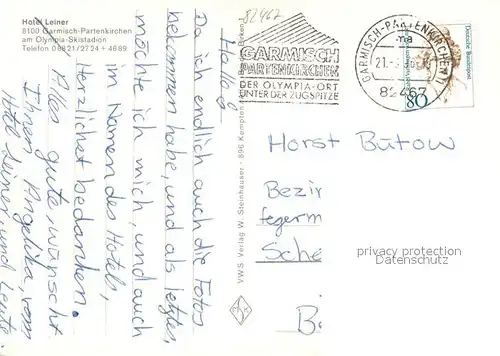 Hotel Leiner
8100 Garmisch-Partenkirchen
am Olympia-Skistadion
Telefon 08821/2724 + 4689
82467
Hallo
Da ich endlich auch die Fotos
bekommen habe, und als letztes,
möchte ich mich, und auch
im Namen des Hotels,
Herzlichst bedanken.
Alles gute, wünscht
Ihnen Angelika, vom
Hotel Leiner, und Leute
VWS Verlag W. Steinhauser - 896 Kempten
GARMISCH
PARTENKIRCHEN
DER OLYMPIA-ORT
UNTER DER ZUGSPITZE
GARMISCH-PARTENKIRCHEN 1
ma
21.
82467
Deutsche Bundespost
80
Horst Bütow
Bezir
fegerm
Sche
B
privacy protection
Datenschutz